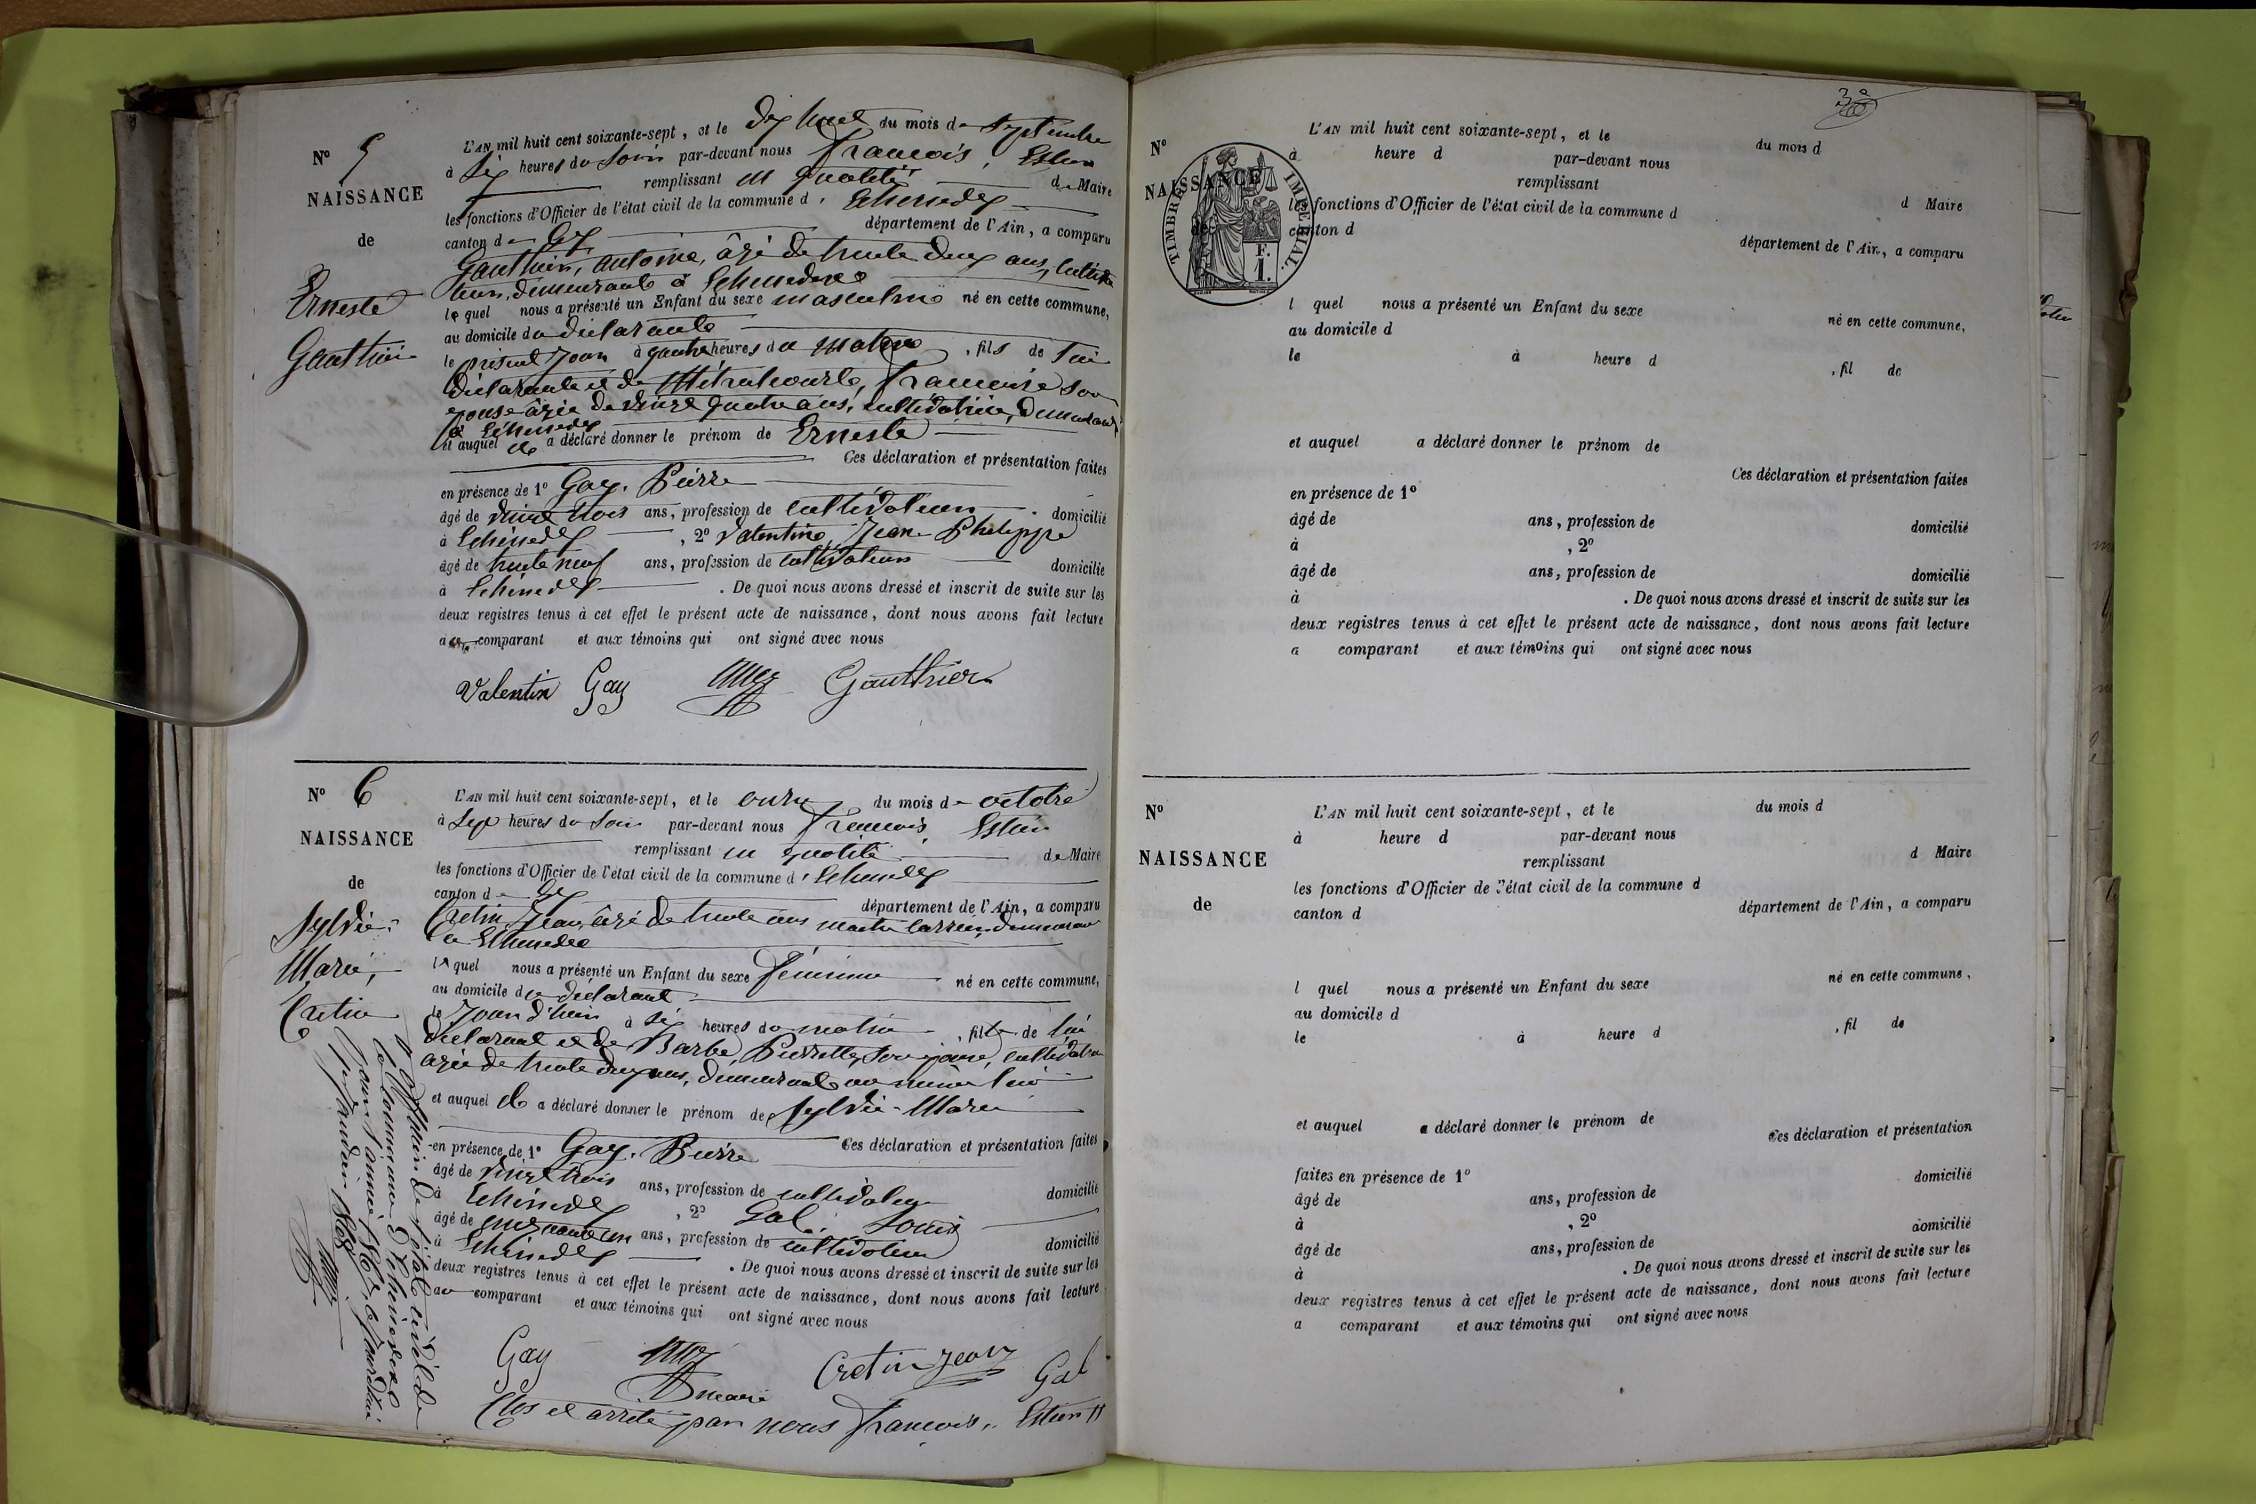 N° 5
NAISSANCE
de
Ernest
Gauthier
L'AN mil huit cent soixante-sept, et le dix huit du mois de septembre
à six heures du soir par-devant nous François, Estier
remplissant en qualité de Maire
les fonctions d'Officier de l'état civil de la commune d' Echenevex
canton de Gex département de l'Ain, a comparu
Gauthier, antoine, âgé de trente deux ans, cultiva
teur, demeurant à Echenevex
lequel nous a présenté un Enfant du sexe masculin né en cette commune,
au domicile du déclarant
le présent jour à quatre heures du matin, fils de lui
déclarant et de françoise son
épouse âgée de vingt quatre ans, cultivatrice, demeurant
à Echenevex
et auquel il a déclaré donner le prénom de Ernest
Ces déclaration et présentation faites
en présence de 1° Gay. Pierre
âgé de vingt trois ans, profession de cultivateur. domicilié
à Echenevex, 2° Valentin, Jean-Philippe
âgé de trente neuf ans, profession de cultivateur domicilié
à Echenevex. De quoi nous avons dressé et inscrit de suite sur les
deux registres tenus à cet effet le présent acte de naissance, dont nous avons fait lecture
au comparant et aux témoins qui ont signé avec nous
Valentin Gay Gauthier
N° 6
NAISSANCE
de
Sylvie-
Marie,
Cretin
L'AN mil huit cent soixante-sept, et le onze du mois de octobre
à sept heures du soir par-devant nous François, Estier
remplissant en qualité de Maire
les fonctions d'Officier de l'état civil de la commune d' Echenevex
canton de Gex département de l'Ain, a comparu
Cretin, Jean, âgé de trente ans demeurant
à Echenevex
lequel nous a présenté un Enfant du sexe féminin né en cette commune,
au domicile du déclarant
le jour d'hier à six heures du matin, fille de lui
déclarant et de Barbe, Pierrette, son épouse, cultivatrice
âgée de trente deux ans, demeurant au même lieu
et auquel il a déclaré donner le prénom de Sylvie-Marie
Ces déclaration et présentation faites
en présence de 1° Gay. Pierre
âgé de vingt trois ans, profession de cultivateur domicilié
à Echenevex, 2° Gal, Louis
âgé de ans, profession de cultivateur domicilié
à Echenevex. De quoi nous avons dressé et inscrit de suite sur les
deux registres tenus à cet effet le présent acte de naissance, dont nous avons fait lecture
au comparant et aux témoins qui ont signé avec nous
Gay Cretin Jean Gal
maire
Clos et arrêté par nous françois, Estier
officier de l'état civil de
la commune d'Echenevex
pour l'année 1867, le
janvier 1868
N°
NAISSANCE
de
TIMBRE IMPERIAL.
F.
1.
L'AN mil huit cent soixante-sept, et le du mois d
à heure d par-devant nous
remplissant d Maire
les fonctions d'Officier de l'état civil de la commune d
canton d département de l'Ain, a comparu
l quel nous a présenté un Enfant du sexe né en cette commune,
au domicile d
le à heure d , fil de
et auquel a déclaré donner le prénom de
Ces déclaration et présentation faites
en présence de 1°
âgé de ans, profession de domicilié
à , 2°
âgé de ans, profession de domicilié
à . De quoi nous avons dressé et inscrit de suite sur les
deux registres tenus à cet effet le présent acte de naissance, dont nous avons fait lecture
a comparant et aux témoins qui ont signé avec nous
N°
NAISSANCE
de
L'AN mil huit cent soixante-sept, et le du mois d
à heure d par-devant nous
remplissant d Maire
les fonctions d'Officier de l'état civil de la commune d
canton d département de l'Ain, a comparu
l quel nous a présenté un Enfant du sexe né en cette commune,
au domicile d
le à heure d , fil de
et auquel a déclaré donner le prénom de
Ces déclaration et présentation
faites en présence de 1° domicilié
âgé de ans, profession de
à , 2° domicilié
âgé de ans, profession de
à . De quoi nous avons dressé et inscrit de suite sur les
deux registres tenus à cet effet le présent acte de naissance, dont nous avons fait lecture
a comparant et aux témoins qui ont signé avec nous